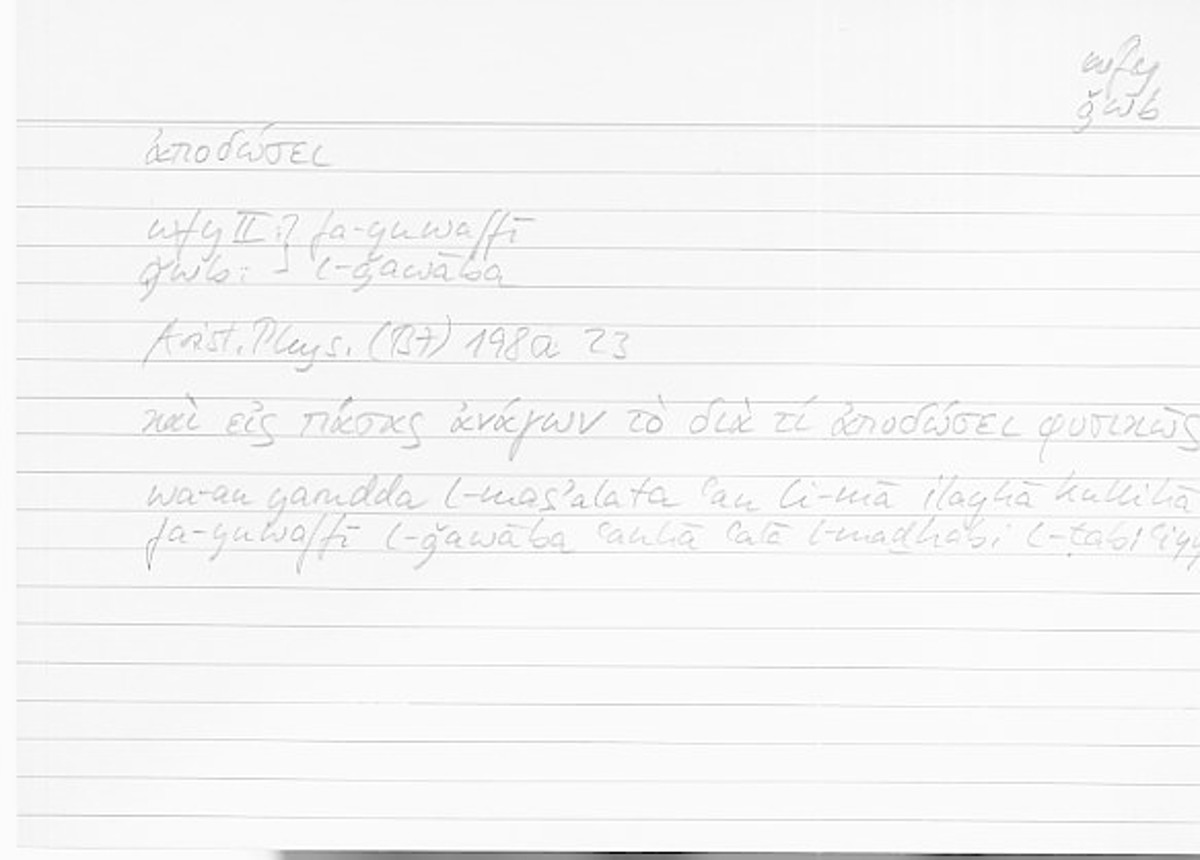 wfy
ǧwb
ἀποδώσει
wfy II:} fa-yuwaffī
ǧwb: l-ǧawāba
Arist. Phys. (B7) 198a 23
καὶ εἰς πάσας ἀνάγων τὸ διὰ τί ἀποδώσει φυσικῶς
wa-an yarudda l-masʾalata ʿan li-mā ilayhā kullihā
fa-yuwaffī l-ǧawāba ʿanhā ʿalā l-madhabi l-ṭabīʿiyy